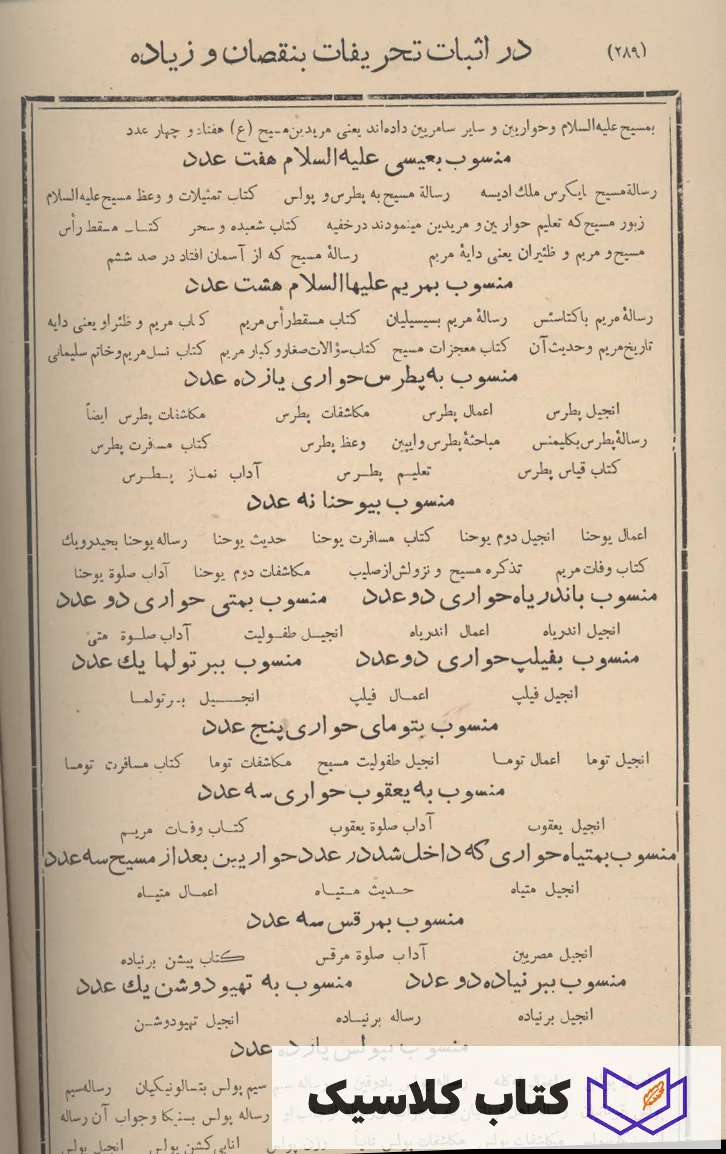 (۲۸۹) در اثبات تحریفات بنقصان و زیاده
بمسیح علیه‌السلام وحواریین و سایر سامریین داده‌اند یعنی مریدین مسیح (ع) هفتاد و چهار عدد
منسوب بعیسی علیه‌السلام هفت عدد
رسالهٔ مسیح بایکرس ملك ادیسه رسالهٔ مسیح به پطرس و پولس کتاب تمثیلات و وعظ مسیح علیه‌السلام
زبور مسیح که تعلیم حواریین و مریدین مینمودند درخفیه کتاب شعبده و سحر کتاب مسقط رأس
مسیح و مریم و ظئیران یعنی دایهٔ مریم رسالهٔ مسیح که از آسمان افتاد در صد ششم
منسوب بمریم علیهاالسلام هشت عدد
رسالهٔ مریم باکناسئس رسالهٔ مریم بسیسیلیان کتاب مسقط رأس مریم کتاب مریم و ظئر او یعنی دایه
تاریخ مریم وحدیث آن کتاب معجزات مسیح کتاب سؤالات صغار و کبار مریم کتاب نسل مریم و خاتم سلیمانی
منسوب به پطرس حواری یازده عدد
انجیل پطرس اعمال پطرس مکاشفات پطرس مکاشفات پطرس ایضاً
رسالهٔ پطرس بکلیمنس مباحثهٔ پطرس وایپین وعظ پطرس کتاب مسافرت پطرس
کتاب قیاس پطرس تعلیم پطرس آداب نماز پطرس
منسوب بیوحنا نه عدد
اعمال یوحنا انجیل دوم یوحنا کتاب مسافرت یوحنا حدیث یوحنا رساله یوحنا بحیدرویك
کتاب وفات مریم تذکره مسیح و نزولش از صلیب مکاشفات دوم یوحنا آداب صلوة یوحنا
منسوب باندریاه حواری دو عدد منسوب بمتی حواری دو عدد
انجیل اندریاه اعمال اندریاه انجیل طفولیت آداب صلوة متی
منسوب بفیلپ حواری دو عدد منسوب ببرتولما یك عدد
انجیل فیلپ اعمال فیلپ انجیل برتولما
منسوب بتومای حواری پنج عدد
انجیل توما اعمال توما انجیل طفولیت مسیح مکاشفات توما کتاب مسافرت توما
منسوب به یعقوب حواری سه عدد
انجیل یعقوب آداب صلوة یعقوب کتاب وفات مریم
منسوب بمتیاه حواری که داخل شد در عدد حواریین بعد از مسیح سه عدد
انجیل متیاه حدیث متیاه اعمال متیاه
منسوب بمرقس سه عدد
انجیل مصریین آداب صلوة مرقس کتاب پیشن برنیاده
منسوب ببرنیاده دو عدد منسوب به تهیودوشن یك عدد
انجیل برنیاده رساله برنیاده انجیل تهیودوشن
منسوب بپولس یازده عدد
سیم پولس بتسالونیکیان رساله سیم
رساله پولس بسنیکا و جواب آن رساله
مکاشفات پولس مکاشفات پولس ثانیاً وزن پولس انابی کشن پولس انجیل پولس
کتاب کلاسیک